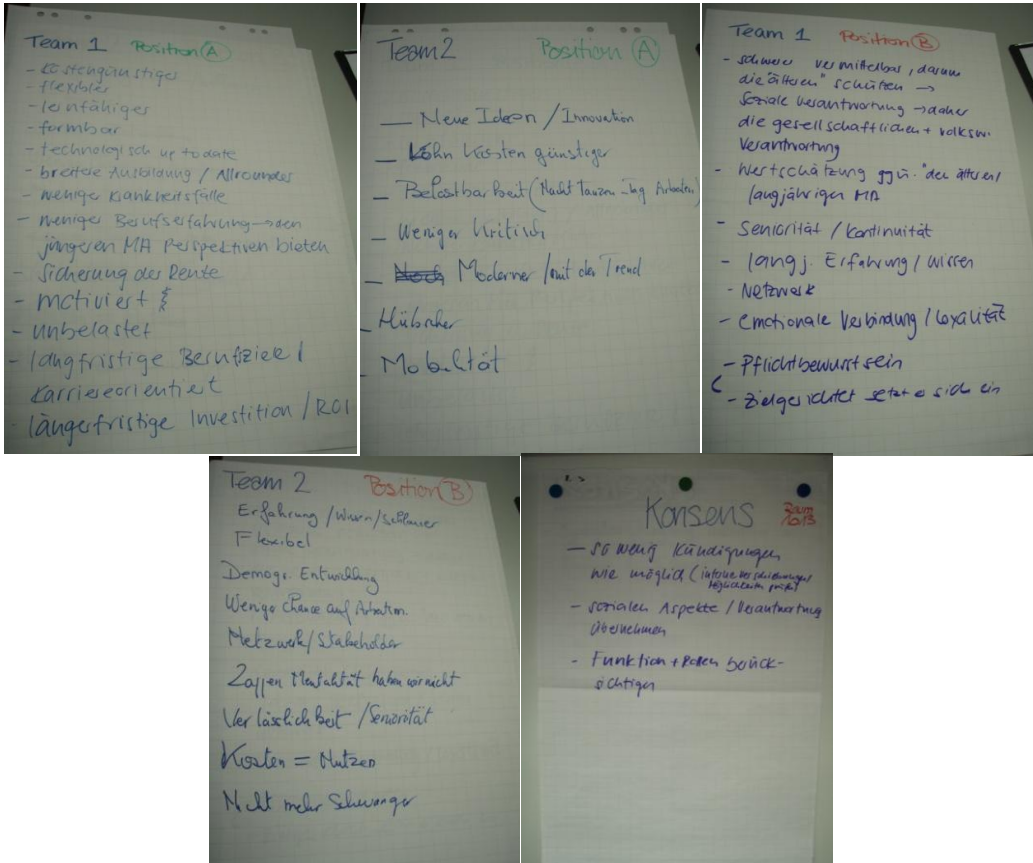 Team 1 Position A
- Kostengünstiger
- flexibler
- lernfähiger
- formbar
- technologisch up to date
- breitere Ausbildung / Allrounder
- weniger Krankheitsfälle
- weniger Berufserfahrung → den
jüngeren MA Perspektiven bieten
- Sicherung der Rente
- motiviert
- unbelastet
- langfristige Berufsziele /
Karriereorientiert
- längerfristige Investition / ROI
Team 2 Position A
- Neue Ideen / Innovation
- Lohn Kosten günstiger
- Belastbarkeit (Nacht Tanzen - Tag Arbeiten)
- Weniger Kritisch
- Moderner / mit der Trend
- Hübscher
- Mobilität
Team 1 Position B
- schwerer vermittelbar, darum
die "älteren" schützen →
Soziale Verantwortung → daher
die gesellschaftlichen + volksw.
Verantwortung
- Wertschätzung ggü. "der älteren /
langjährigen MA
- Seniorität / Kontinuität
- langj. Erfahrung / Wissen
- Netzwerk
- emotionale Verbindung / Loyalität
- Pflichtbewusstsein
- Zielgerichtet setzt er sich ein
Team 2 Position B
Erfahrung / Wissen / Schlauer
Flexibel
Demogr. Entwicklung
Wenige Chance auf
Netzwerk / Stakeholder
Mentalität haben wir nicht
Verlässlichkeit / Seniorität
Kosten = Nutzen
Nicht mehr Schwanger
Konsens Raum 1013
- so wenig Kündigungen
wie möglich (interne
Möglichkeiten prüfen)
- sozialen Aspekte / Verantwortung
übernehmen
- Funktion + Rollen berück-
sichtigen